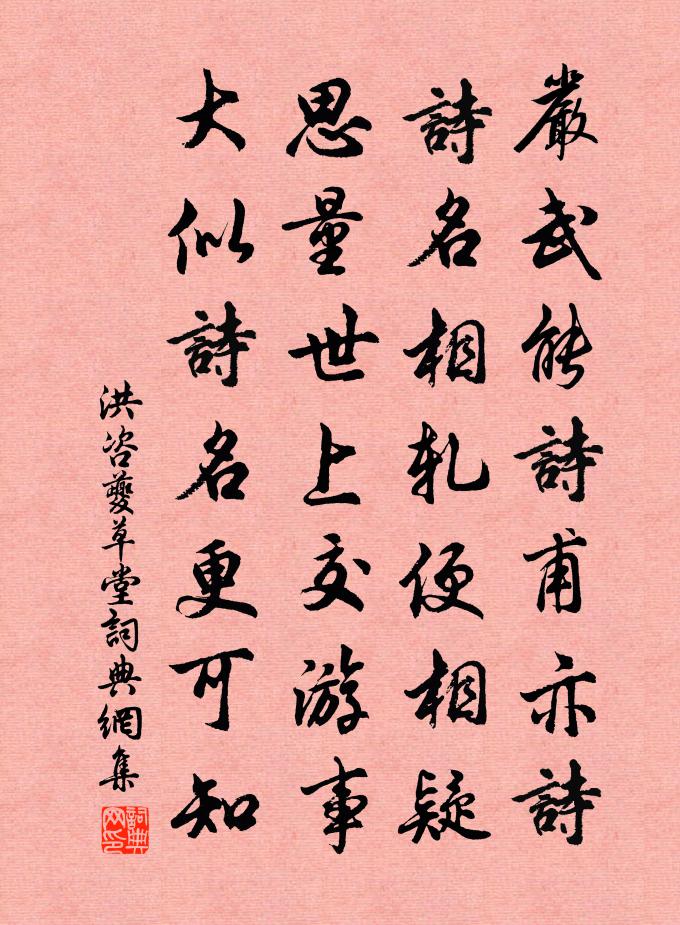 嚴武能詩甫亦詩
詩名相軋便相疑
思量世上交游事
大似詩名更可知
洪咨夔草堂詞典網集
詞典網印